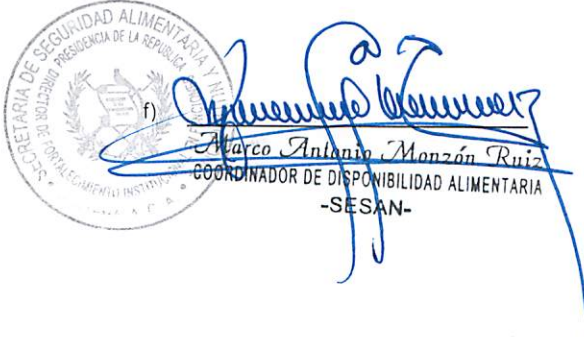 SECRETARIA DE SEGURIDAD ALIMENTARIA Y
PRESIDENCIA DE LA REPUBLICA
DIRECTOR DE FORTALECIMIENTO INSTITUCIONAL
f)
Marco Antonio Monzón Ruiz
COORDINADOR DE DISPONIBILIDAD ALIMENTARIA
-SESAN-